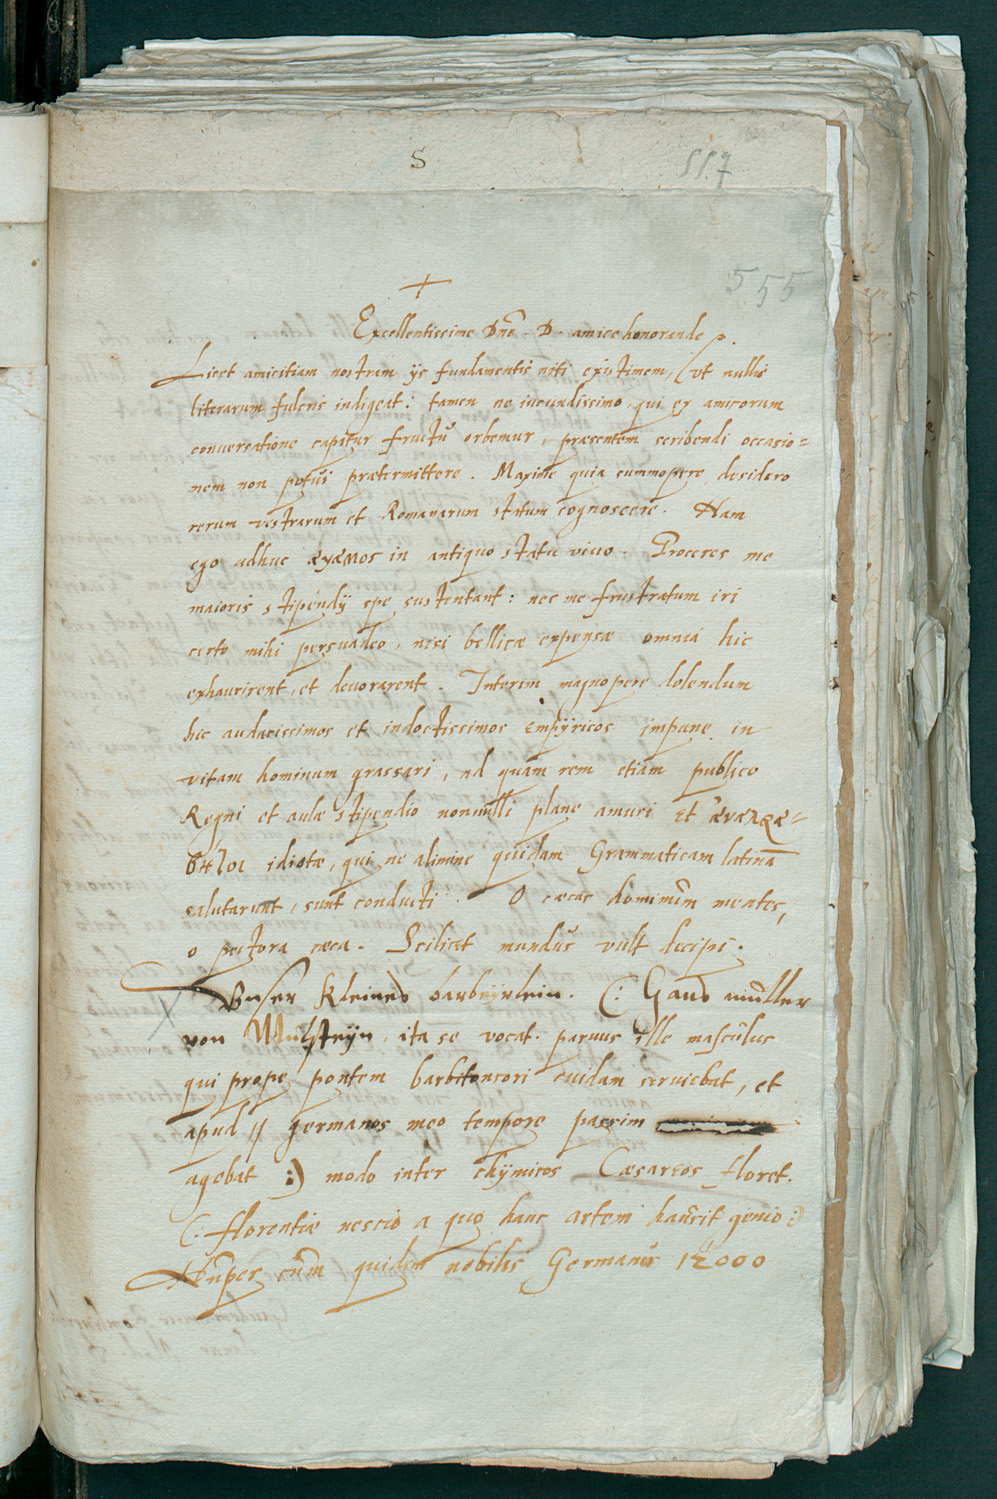 S
557
555
+
Excellentissime Dnē. D. amice honorande
Licet amicitiam nostram ijs fundamentis niti existimem, ut nullis
literarum fulcris indigeat: tamen ne iucundissimo qui ex amicorum
conuersatione capitur fructū orbemur, præsentem scribendi occasio=
nem non potui prætermittere. Maxime quia summopere desidero
rerum vestrarum et Romanarum statum cognoscere. Nam
ego adhuc ἄγαμος in antiquo statu viuo. Proceres me
maioris stipendij spe sustentant: nec me frustratum iri
certo mihi persuadeo, nisi bellicæ expensæ omnia hic
exhaurirent, et deuorarent. Interim magnopere dolendum
hic audacissimos et indoctissimos Empÿricos impune in
vitam hominum grassari, ad quam rem etiam publico
Regni et aulæ stipendio nonnulli plane amusi et ἀναλφά=
βητοι idiotæ, qui ne a limine quidam Grammaticam latinā
salutarunt, sunt conducti. O cæcas hominum mentes,
o pectora cæca. Scilicet mundus vult decipi.
Vnser kleines barbeÿrlein. (: Hans müller
von Mulsteÿn, ita se vocat. paruus ille masculus
qui prope pontem barbitonsori cuidam seruiebat, et
apud germanos meo tempore
agebat :) modo inter chÿmicos Cæsareos floret.
(: florentiæ nescio a quo hanc artem hausit genio :)
Nuper cum quidam nobilis Germanus 12000